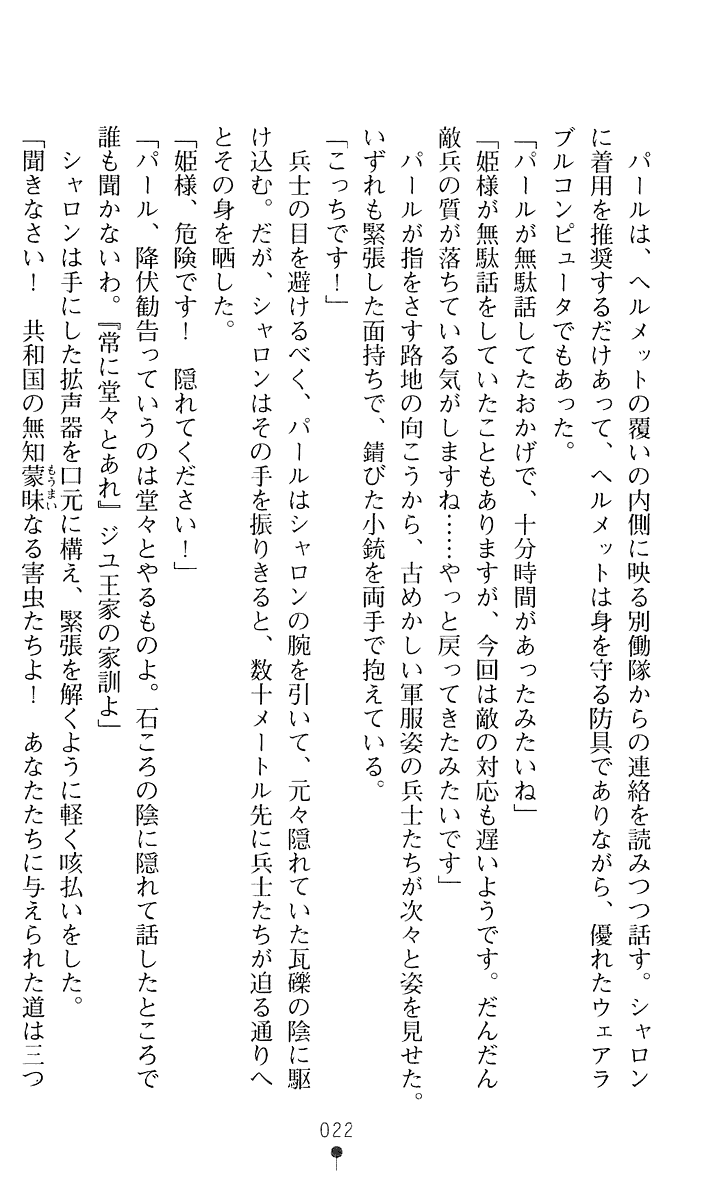 パールは、ヘルメットの覆いの内側に映る別働隊からの連絡を読みつつ話す。シャロン
に着用を推奨するだけあって、ヘルメットは身を守る防具でありながら、優れたウェアラ
ブルコンピュータでもあった。
「パールが無駄話してたおかげで、十分時間があったみたいね」
「姫様が無駄話をしていたこともありますが、今回は敵の対応も遅いようです。だんだん
敵兵の質が落ちている気がしますね……やっと戻ってきたみたいです」
パールが指をさす路地の向こうから、古めかしい軍服姿の兵士たちが次々と姿を見せた。
いずれも緊張した面持ちで、錆びた小銃を両手で抱えている。
「こっちです！」
兵士の目を避けるべく、パールはシャロンの腕を引いて、元々隠れていた瓦礫の陰に駆
け込む。だが、シャロンはその手を振りきると、数十メートル先に兵士たちが迫る通りへ
とその身を晒した。
「姫様、危険です！　隠れてください！」
「パール、降伏勧告っていうのは堂々とやるものよ。石ころの陰に隠れて話したところで
誰も聞かないわ。『常に堂々とあれ』ジユ王家の家訓よ」
シャロンは手にした拡声器を口元に構え、緊張を解くように軽く咳払いをした。
「聞きなさい！　共和国の無知蒙昧なる害虫たちよ！　あなたたちに与えられた道は三つ
もうまい
022